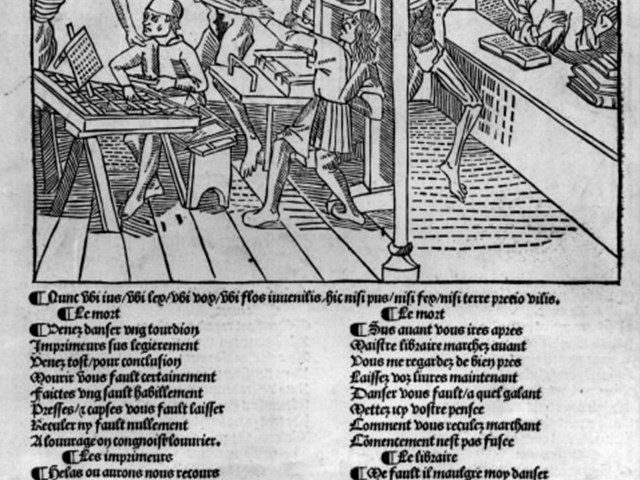 ¶Nunc vbi ius/vbi lex/vbi vox/vbi flos iuuenilis. hic nisi pus/nisi fex/nisi terre precio vilis.
¶Le mort
¶Venez danser vng tourdion
Imprimeurs sus legierement
Venez tost/pour conclusion
Mourir vous fault certainement
Faictes vng sault habillement
Presses/⁊ capses vous fault laisser
Reculer ny fault nullement
A louurage on congnoist louurier.
¶Les imprimeurs
¶Helas ou aurons nous recours
¶Le mort
¶Sus auant vous ires apres
Maistre libraire marchez auant
Vous me regardez de bien pres
Laissez voz liures maintenant
Danser vous fault/a quel galant
Mettez icy vostre pensee
Comment vous reculez marchant
Cōmencement nest pas fusee
¶Le libraire
¶Me fault il maulgre moy danser